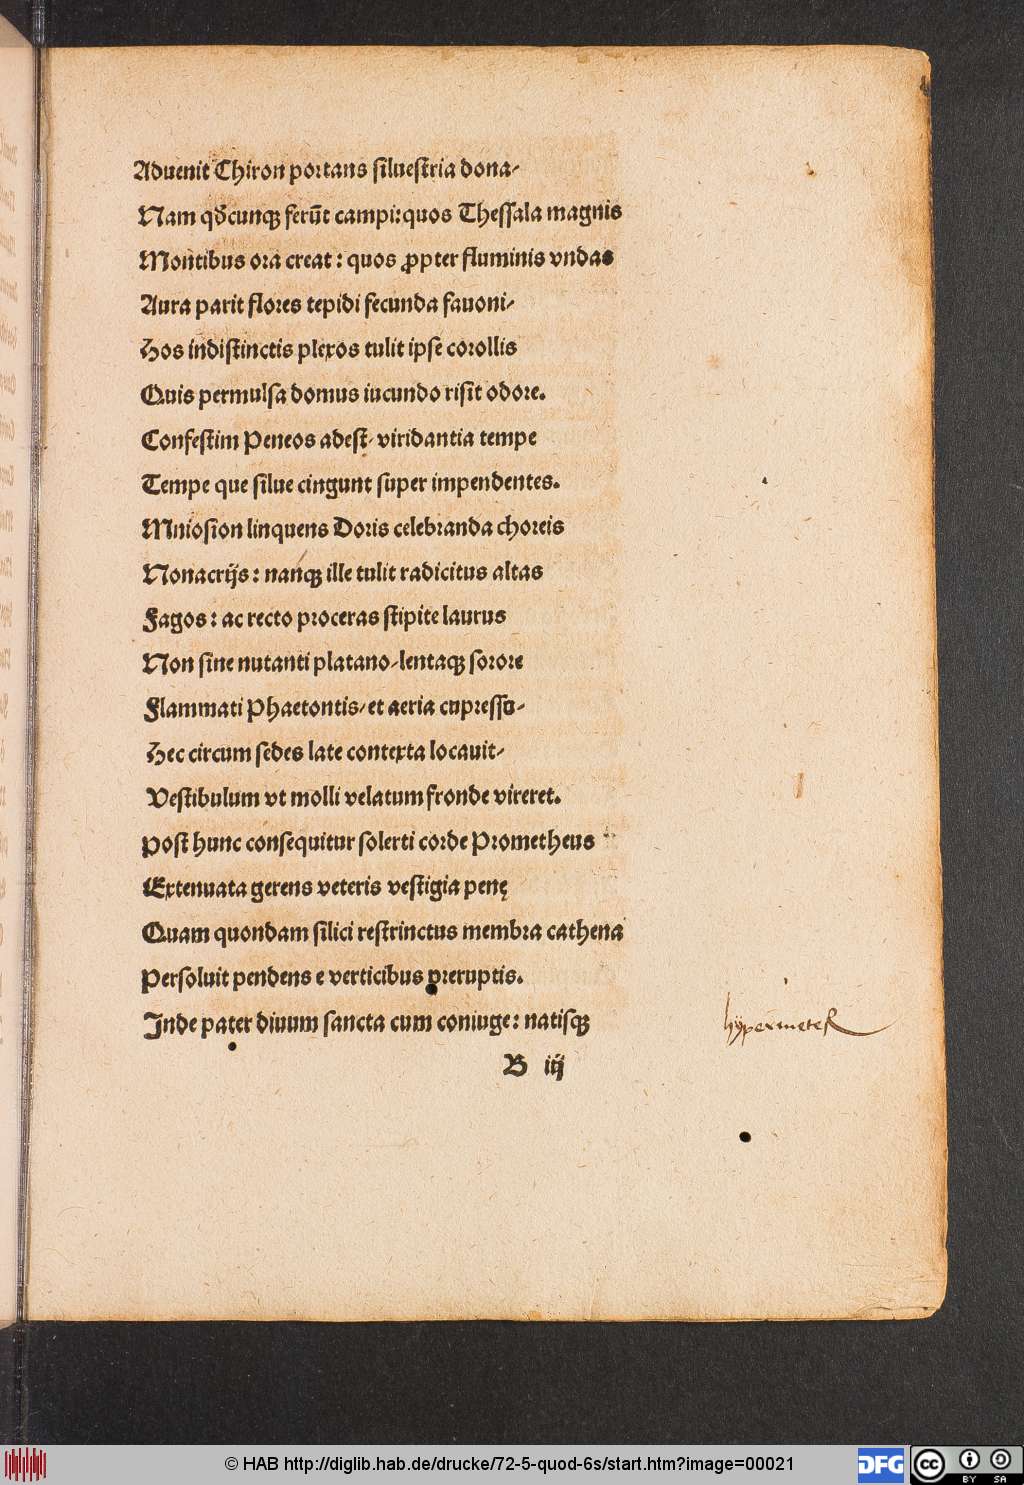 Aduenit Chiron portans ſilueſtria dona⸗
Nam qđcunqꝫ ferūt campi: quos Theſſala magnis
Montibus ora creat : quos ꝓpter fluminis vndas
Aura parit flores tepidi fecunda fauoni⸗
Hos indiſtinctis plexos tulit ipſe corollis
Quis permulſa domus iucundo riſit odore.
Confeſtim Peneos adeſt⸗ viridantia tempe
Tempe que ſilue cingunt ſuper impendentes.
Mnioſion linquens Doris celebranda choreis
Nonacrijs : nanqꝫ ille tulit radicitus altas
Fagos : ac recto proceras ſtipite laurus
Non ſine nutanti platano⸗lentaqꝫ ſorore
Flammati Phaetontis⸗ et aeria cupreſſu⸗
Hec circum ſedes late contexta locauit⸗
Veſtibulum vt molli velatum fronde vireret.
Poſt hunc conſequitur ſolerti corde Prometheus
Extenuata gerens veteris veſtigia penę
Quam quondam ſilici reſtrinctus membra cathena
Perſoluit pendens e verticibus preruptis.
Inde pater diuum ſancta cum coniuge : natiſqꝫ
hÿpermeteR
B iij
© HAB http://diglib.hab.de/drucke/72-5-quod-6s/start.htm?image=00021
DFG
cc
BY SA